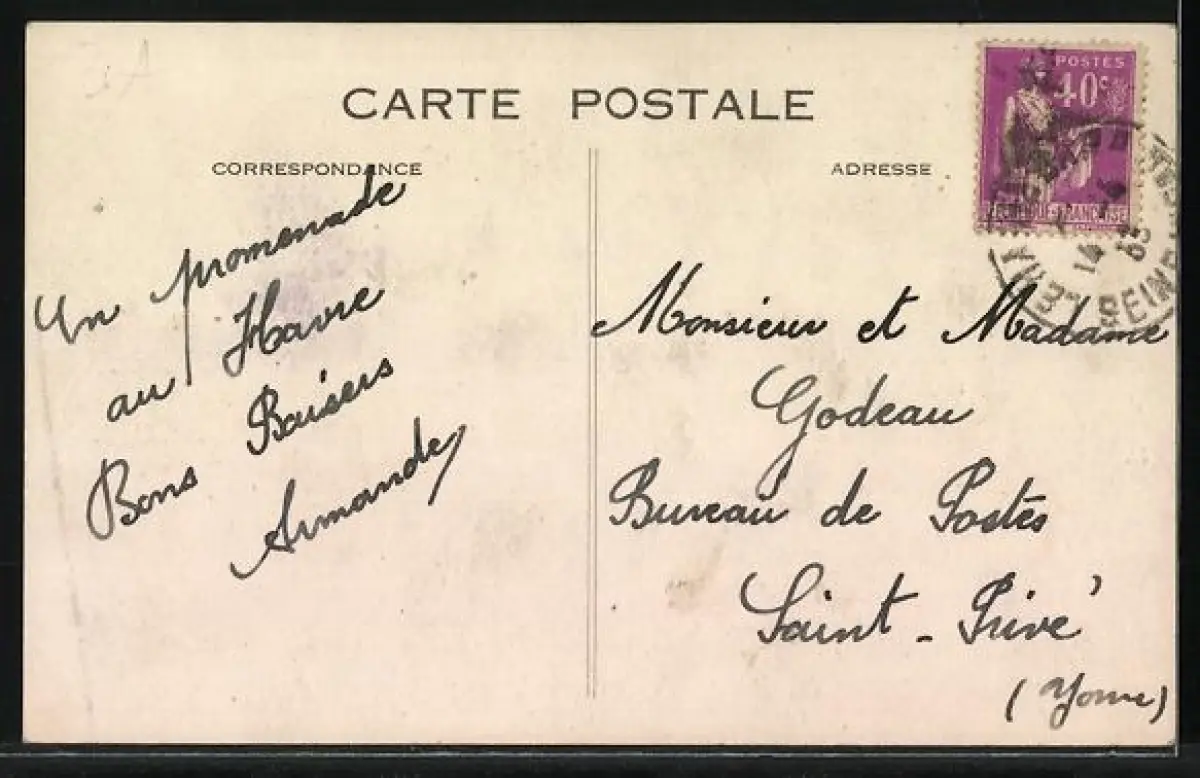 CARTE POSTALE
CORRESPONDANCE
ADRESSE
POSTES
40c
REPUBLIQUE FRANCAISE
14
35
SEINE
En promenade
au Havre
Bons Baisers
Armande
Monsieur et Madame
Godeau
Bureau de Postes
Saint-Privé
(Yonne)